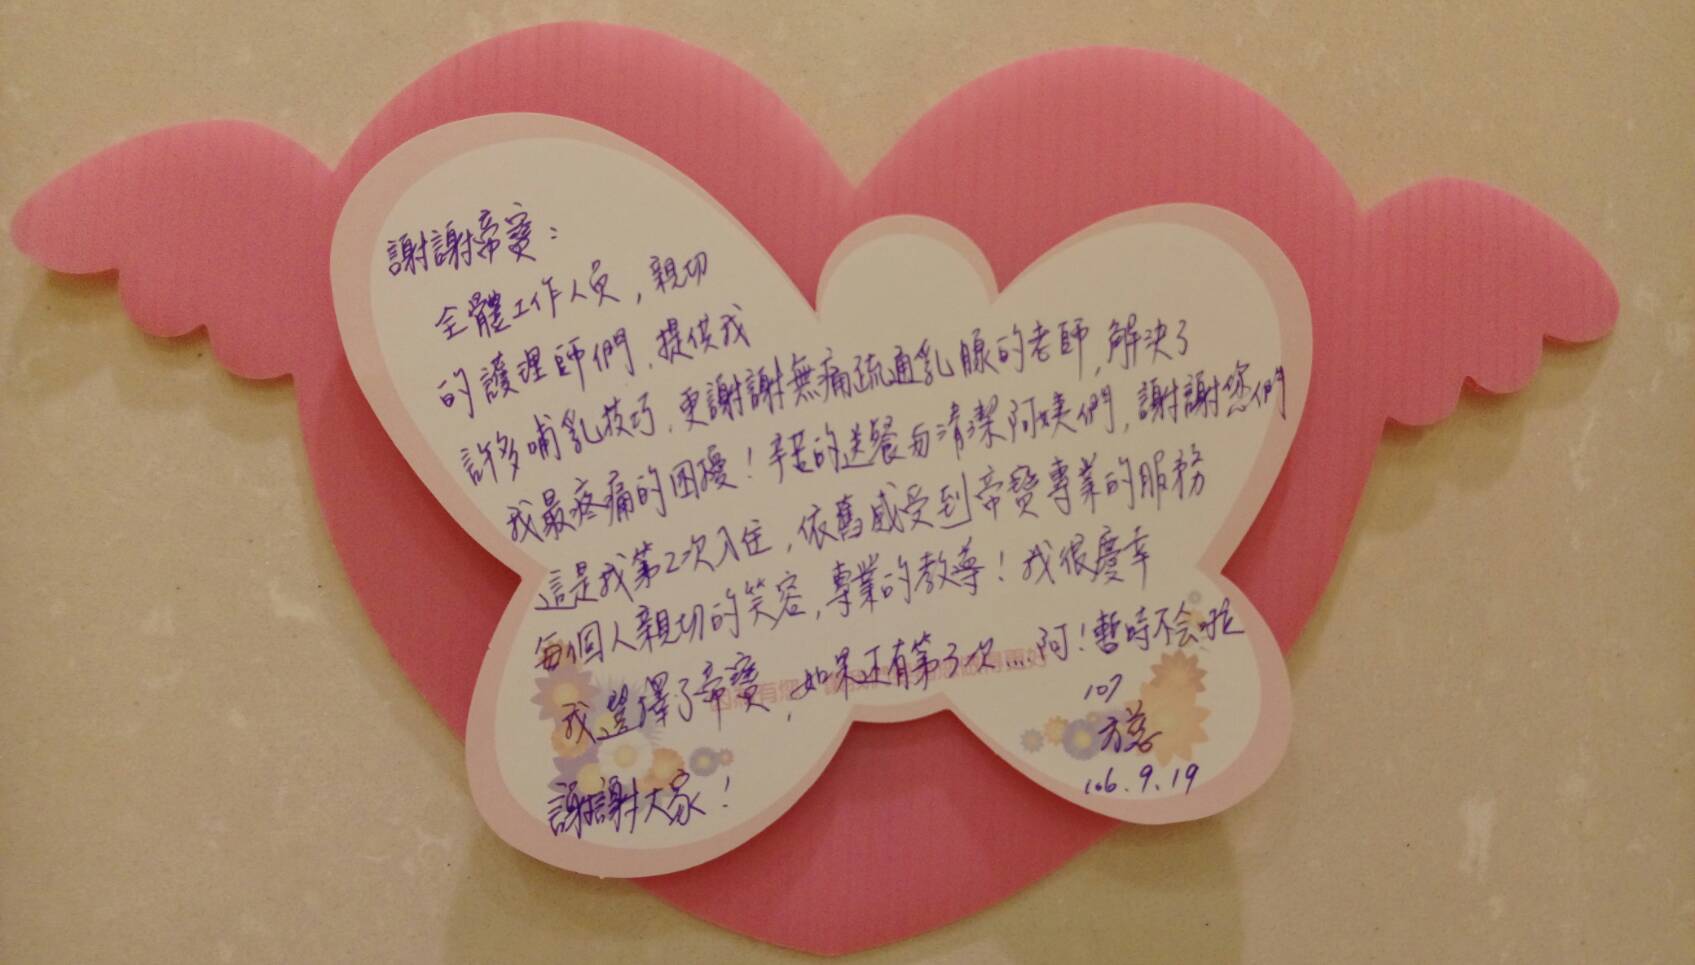 謝謝帝寶：
全體工作人員，親切
的護理師們，提供我
許多哺乳技巧，更謝謝無痛疏通乳腺的老師，解決了
我最疼痛的困擾！辛苦的送餐與清潔阿姨們，謝謝您們
這是我第2次入住，依舊感受到帝寶專業的服務
每個人親切的笑容，專業的教導！我很慶幸
我選擇了帝寶，如果还有第3次...阿！暫時不会啦
謝謝大家！
107
方慈
106.9.19